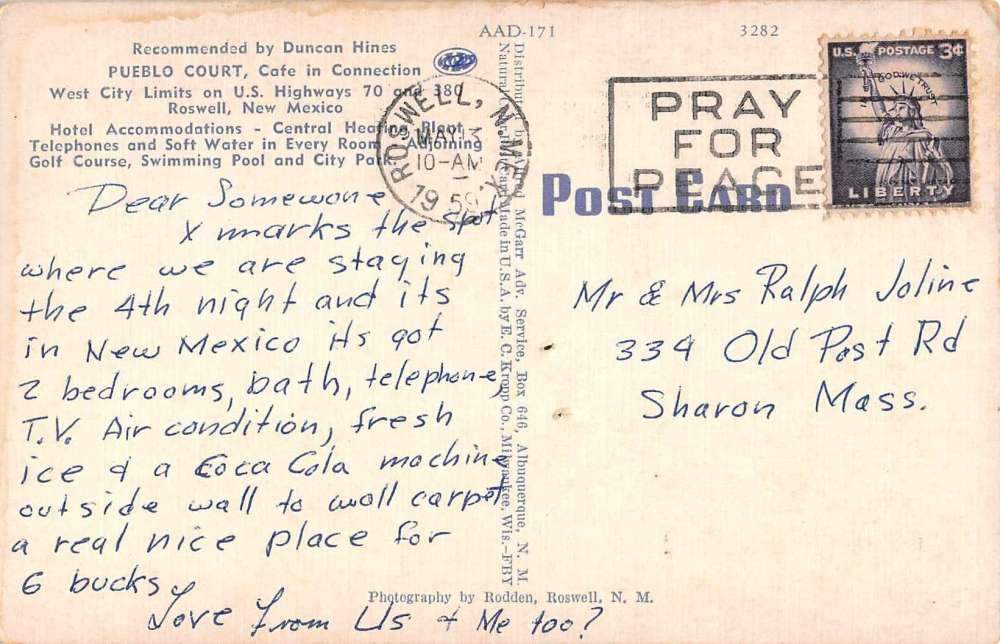 AAD-171
3282
Recommended by Duncan Hines
PUEBLO COURT, Cafe in Connection
West City Limits on U.S. Highways 70 and 380
Roswell, New Mexico
Hotel Accommodations - Central Heating Plant
Telephones and Soft Water in Every Room - Adjoining
Golf Course, Swimming Pool and City Park
ROSWELL, N. MEX.
MAY 13
10-AM
1959
PRAY
FOR
PEACE
U.S. POSTAGE 3¢
IN GOD WE TRUST
LIBERTY
POST CARD
Dear Somewone
X marks the spot
where we are staying
the 4th night and its
in New Mexico its got
2 bedrooms, bath, telephone,
T.V. Air condition, fresh
ice & a Coca Cola machine
outside wall to woll carpet
a real nice place for
6 bucks
Love from Us & Me too?
Mr & Mrs Ralph Joline
334 Old Post Rd
Sharon Mass.
Distributed by Alfred McGarr Adv. Service, Box 646, Albuquerque, N. M.
Natural Color Card Made in U.S.A. by E. C. Kropp Co., Milwaukee, Wis.-FBY
Photography by Rodden, Roswell, N. M.